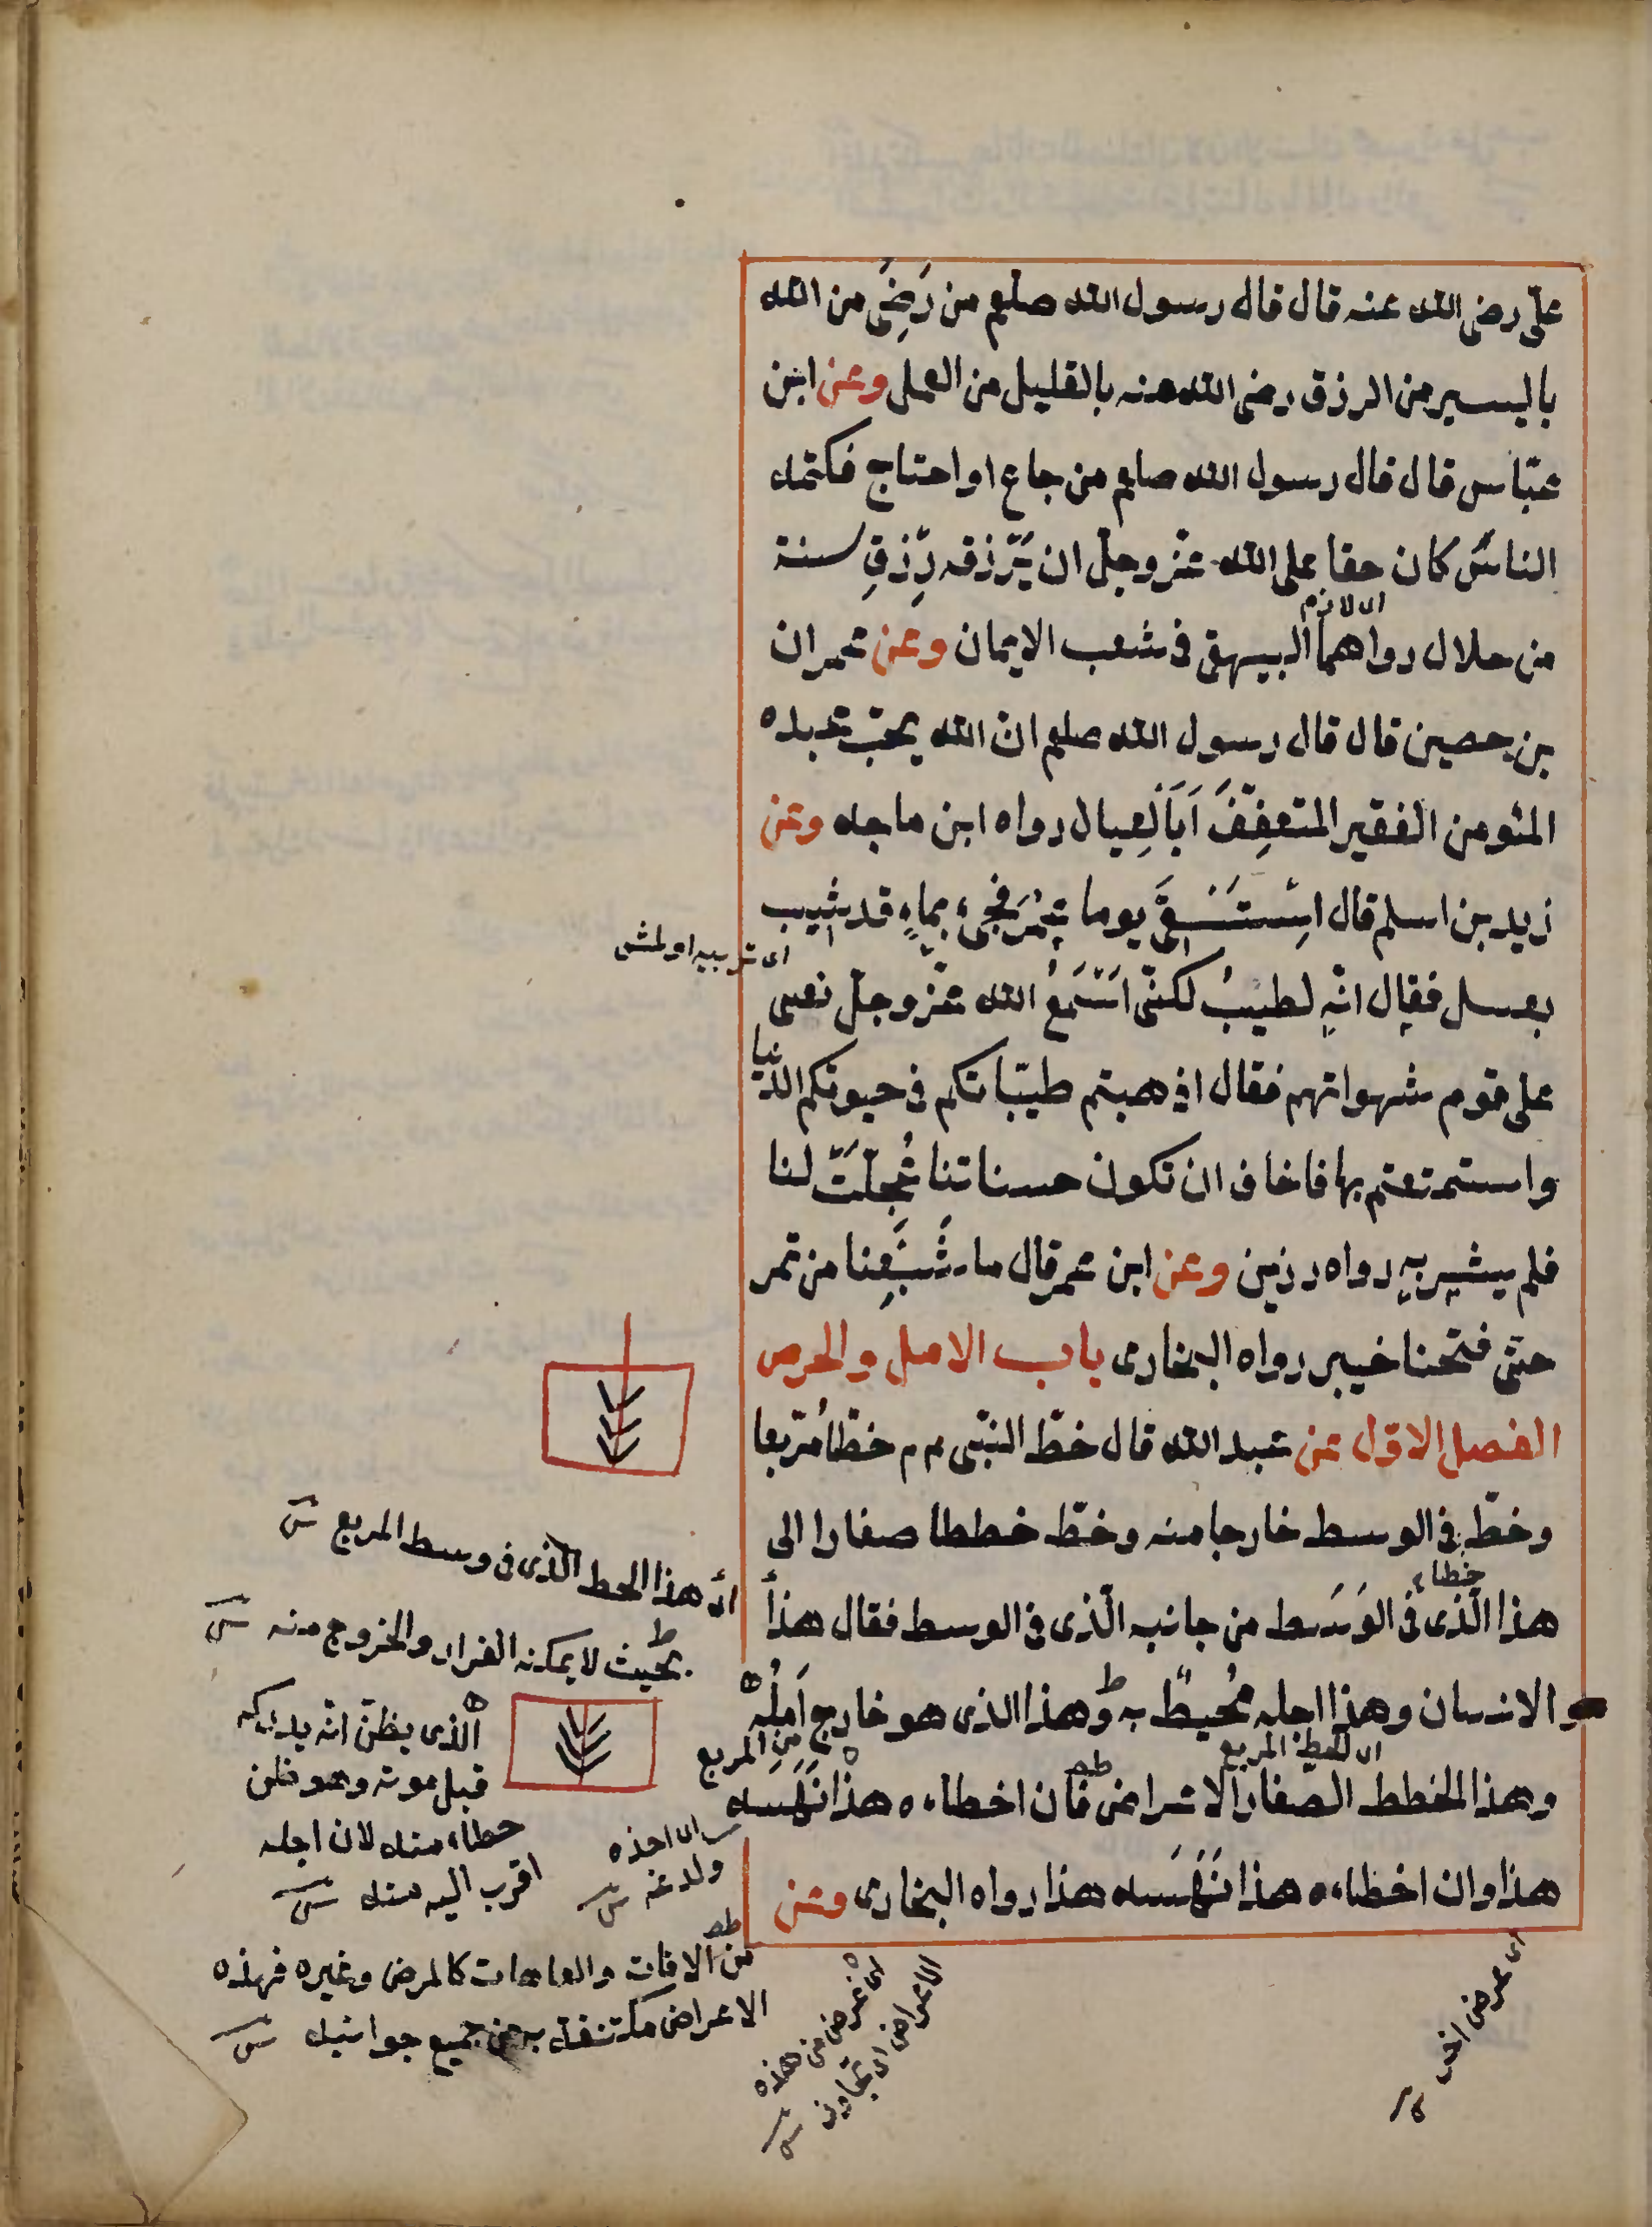 علىّ رضى الله عنه قال قال رسول الله صلعم من رَضِىَ من الله
باليسير من الرزق رضى الله منه بالقليل من العمل وعن ابن
عبّاس قال قال رسول الله صلعم من جاع او احتاج فكتمه
الناسَ كان حقا على الله عزّ وجلّ ان يَرزقه رِزقِ سنة
من حلال رواهما البيهقى فى شعب الايمان وعن عمران
بن حصين قال قال رسول الله صلعم انّ الله يحبّ عبده
المؤمن الفقير المتعفِّفَ اَبَا لعِيال رواه ابن ماجه وعن
زيد بن اسلم قال اسْتَسْقَى يوما عُمَرُ فجىء بماءٍ قد شيب
اى شربيه اولمش
بعسل فقال انّه لطيبٌ لكنّى اَسْمَعُ الله عزّ وجلّ نعى
على قوم شهواتهم فقال اذهبتم طيّباتكم فى حيوتكم الدّنيا
واستمتعتم بها فاخاف ان تكون حسناتنا عُجِّلَتْ لنا
فلم يشربه رواه رزين وعن ابن عمر قال ما شَبِعنا من تمر
حتّى فتحنا خيبر رواه البخارى باب الامل والحرص
الفصل الاوّل عن عبد الله قال خطّ النبّى م م خطّا مُرّبعا
وخطّ فى الوسط خارجا منه وخطّ خططا صغارا الى
خطاء
هذا الّذى فى الوَسَط من جانبه الّذى فى الوسط فقال هذا
الانسان وهذا اجله مُحيطٌ به وهذا الذى هو خارج اَمَلُهُ
من المربع
اى الخط المربع
وهذا الخطط الصّغار الاعراض فان اخطاءه هذا نَهَسه
هذا وان اخطاءه هذا نَهَسه هذا رواه البخارى وعن
اى هذا الخط الّذى فى وسط المربع
بحيث لا يمكنه الفرار والخروج منه
الّذى يظنّ انّه يدركه
قبل موته وهو ظن
خطاء منه لان اجله
اقرب اليه منه
اى اخذه
ولدغه
من الافات والعاهات كالمرض وغيره فهذه
الاعراض مكتنفة به من جميع جوانبه
اى عرض من هذه
الاعراض اى تجاوز
اى عرض اخر